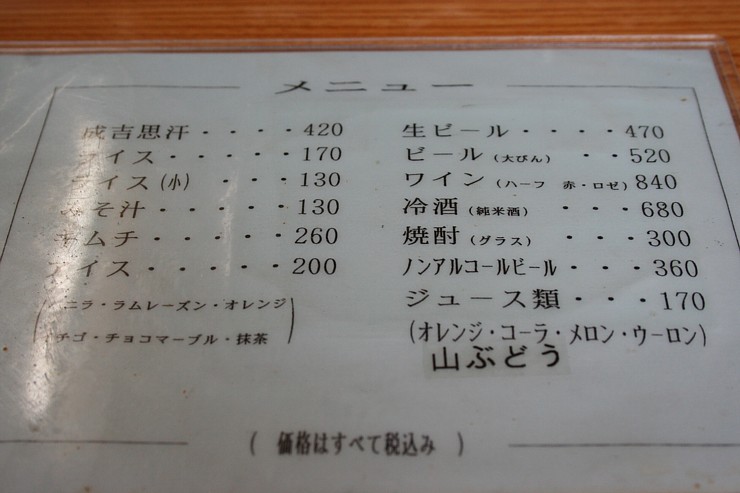 メニュー
成吉思汗・・・・420
ライス・・・・・170
ライス(小)・・・130
みそ汁・・・・・130
キムチ・・・・・260
アイス・・・・・200
バニラ・ラムレーズン・オレンジ
イチゴ・チョコマーブル・抹茶
生ビール・・・・470
ビール(大びん)・・520
ワイン(ハーフ 赤・ロゼ)840
冷酒(純米酒)・・・680
焼酎(グラス)・・・300
ノンアルコールビール・・・360
ジュース類・・・170
(オレンジ・コーラ・メロン・ウーロン)
山ぶどう
( 価格はすべて税込み )